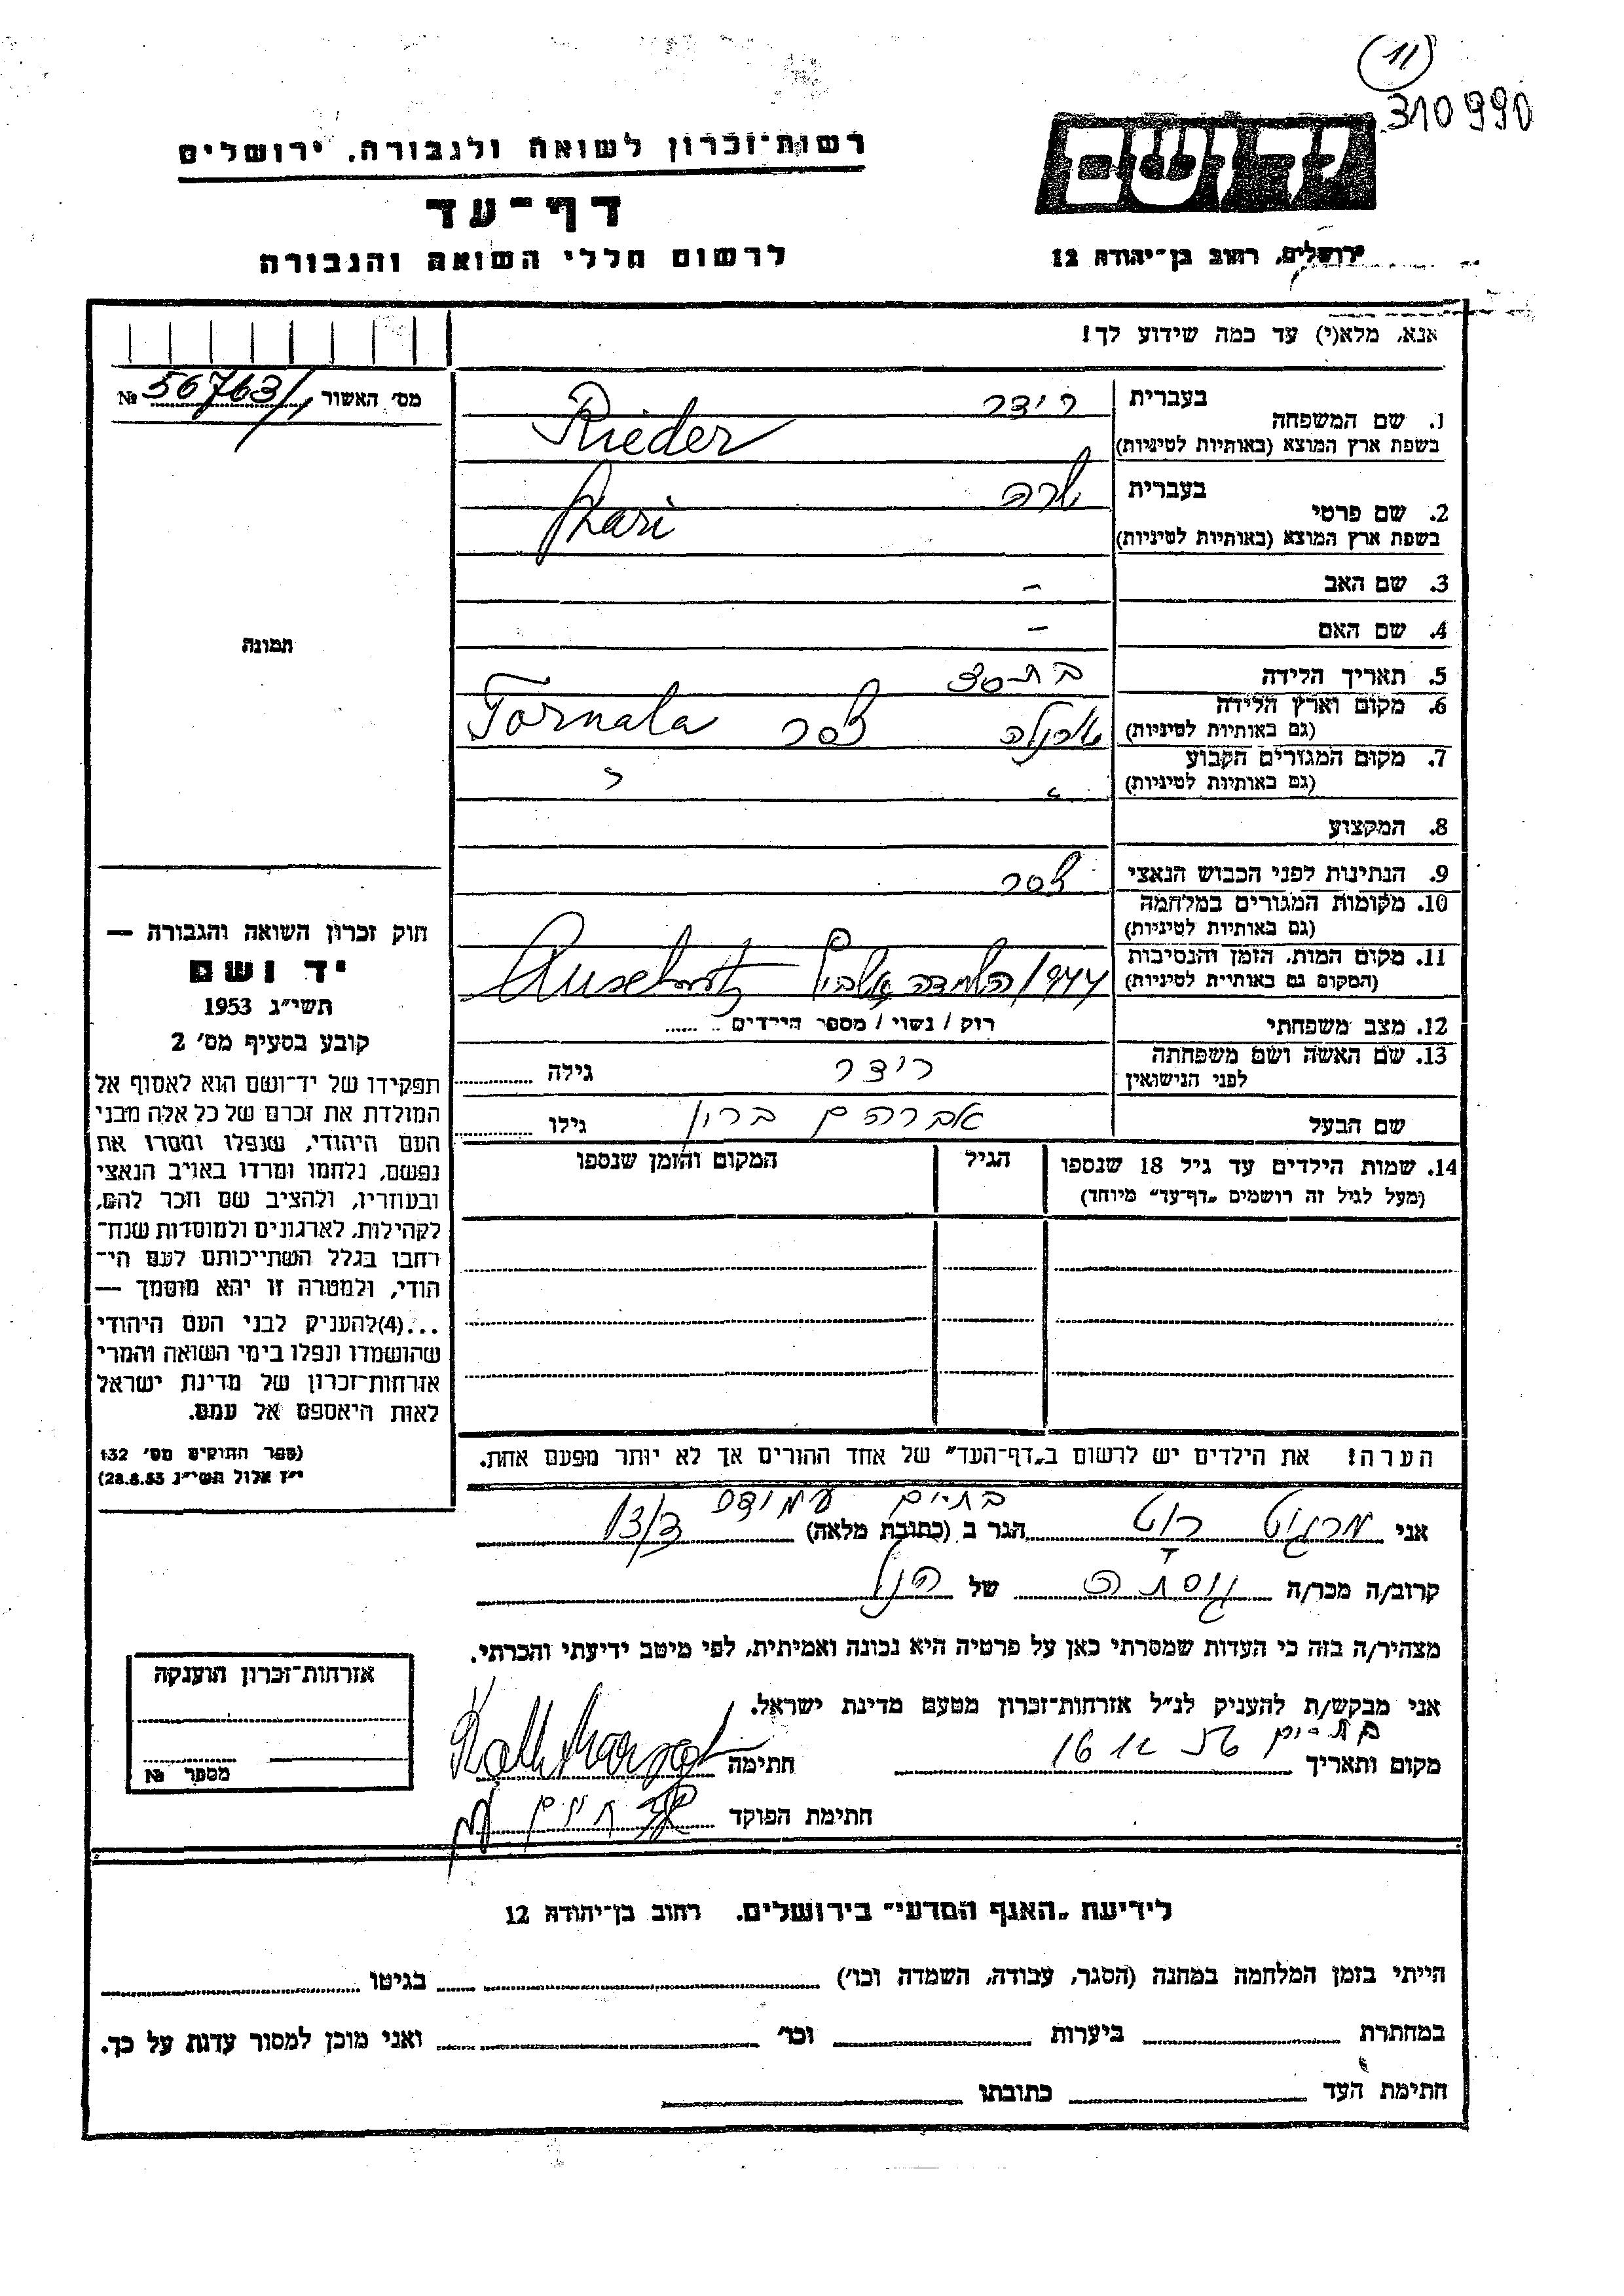 11
310990
יד ושם
רשות-זכרון לשואה ולגבורה, ירושלים
דף-עד
לרשום חללי השואה והגבורה
ירושלים, רחוב בן-יהודה 12
אנא, מלא(י) עד כמה שידוע לך!
מס׳ האשור № 56763/1
1. שם המשפחה
בעברית רידר
בשפת ארץ המוצא (באותיות לטיניות) Rieder
2. שם פרטי
בעברית שרה
בשפת ארץ המוצא (באותיות לטיניות) Shari
3. שם האב –
4. שם האם –
תמונה
5. תאריך הלידה
6. מקום וארץ הלידה Tornala
(גם באותיות לטיניות)
7. מקום המגורים הקבוע
(גם באותיות לטיניות)
8. המקצוע
9. הנתינות לפני הכבוש הנאצי
10. מקומות המגורים במלחמה
(גם באותיות לטיניות)
11. מקום המות, הזמן והנסיבות 1944
(המקום גם באותיית לטיניות)
12. מצב משפחתי רוק / נשוי / מספר הילדים
13. שם האשה ושם משפחתה
לפני הנישואין רידר גילה
שם הבעל אברהם ברון גילו
14. שמות הילדים עד גיל 18 שנספו
(מעל לגיל זה רושמים „דף-עד״ מיוחד)
הגיל
המקום והזמן שנספו
חוק זכרון השואה והגבורה —
יד ושם
תשי״ג 1953
קובע בסעיף מס׳ 2
תפקידו של יד-ושם הוא לאסוף אל
המולדת את זכרם של כל אלה מבני
העם היהודי, שנפלו ומסרו את
נפשם, נלחמו ומרדו באויב הנאצי
ובעוזריו, ולהציב שם וזכר להם,
לקהילות, לארגונים ולמוסדות שנח־
רחבו בגלל השתייכותם לעם הי־
הודי, ולמטרה זו יהא מוסמך —
...(4)להעניק לבני העם היהודי
שהושמדו ונפלו בימי השואה והמרי
אזרחות-זכרון של מדינת ישראל
לאות היאספם אל עמם.
(ספר החוקים מס׳ 132
י״ז אלול תשי״ג 28.8.53)
הערה! את הילדים יש לרשום ב„דף-העד״ של אחד ההורים אך לא יותר מפעם אחת.
אני מרגוט רוט הגר ב (כתובת מלאה) בת ים
קרוב/ה מכר/ה גיסתה של הנ״ל
מצהיר/ה בזה כי העדות שמסרתי כאן על פרטיה היא נכונה ואמיתית, לפי מיטב ידיעתי והכרתי.
אני מבקש/ת להעניק לנ״ל אזרחות-זכרון מטעם מדינת ישראל.
מקום ותאריך בת-ים חתימה
חתימת הפוקד
אזרחות-זכרון הוענקה
מספר №
לידיעת „האגף המדעי״ בירושלים. רחוב בן-יהודה 12
הייתי בזמן המלחמה במחנה (הסגר, עבודה, השמדה וכו׳) בגיטו
במחתרת ביערות וכו׳ ואני מוכן למסור עדות על כך.
חתימת העד כתובתו